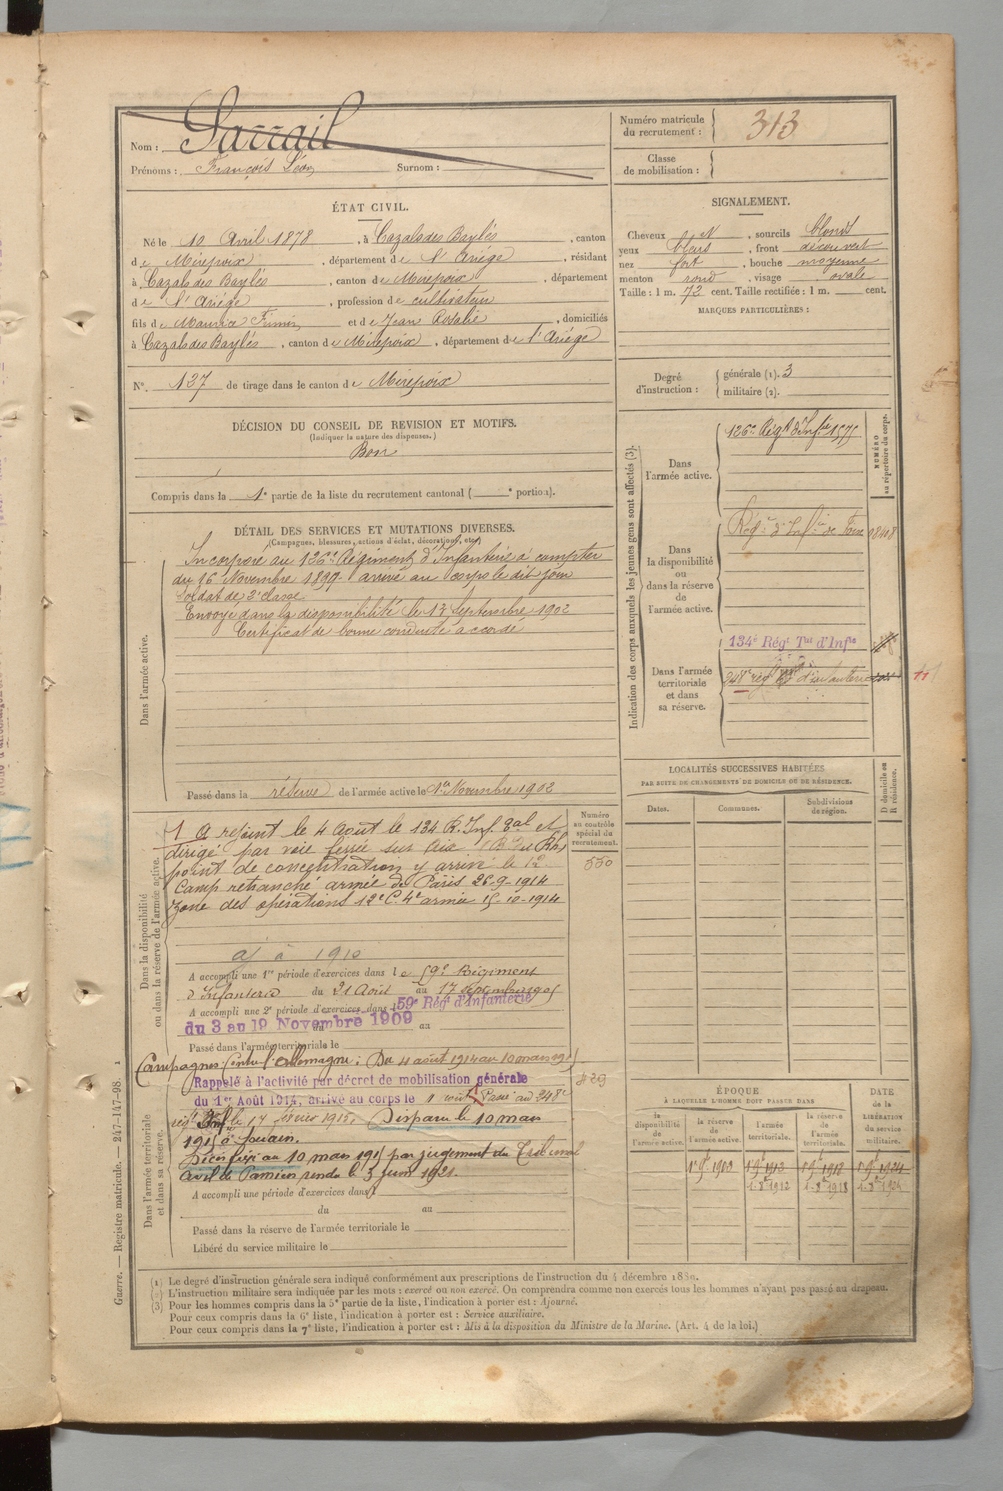 Nom : Sarrail
Prénoms : François Léon Surnom :
Numéro matricule du recrutement : 313
Classe de mobilisation :
ÉTAT CIVIL.
Né le 10 Avril 1878, à Cazals des Baylès, canton
de Mirepoix, département de l'Ariège, résidant
à Cazals des Baylès, canton de Mirepoix, département
de l'Ariège, profession de cultivateur
fils de Maurice Firmin et de Jean Rosalie, domiciliés
à Cazals des Baylès, canton de Mirepoix, département de l'Ariège
N° 127 de tirage dans le canton de Mirepoix
SIGNALEMENT.
Cheveux N, sourcils blonds
yeux bleus, front découvert
nez fort, bouche moyenne
menton rond, visage ovale
Taille : 1 m. 72 cent. Taille rectifiée : 1 m. cent.
MARQUES PARTICULIÈRES :
Degré d'instruction : générale (1). 3
militaire (2).
DÉCISION DU CONSEIL DE REVISION ET MOTIFS.
(Indiquer la nature des dispenses.)
Bon
Compris dans la 1e partie de la liste du recrutement cantonal ( e portion).
DÉTAIL DES SERVICES ET MUTATIONS DIVERSES.
(Campagnes, blessures, actions d'éclat, décorations, etc.)
Dans l'armée active.
Incorporé au 126e Régiment d'Infanterie à compter
du 16 Novembre 1899 arrivé au corps le dit jour
soldat de 2e classe
Envoyé dans la disponibilité le 13 Septembre 1902
Certificat de bonne conduite accordé
Passé dans la réserve de l'armée active le 1er Novembre 1902
Indication des corps auxquels les jeunes gens sont affectés (3).
NUMÉRO au répertoire du corps.
Dans l'armée active.
126e Régt d'Infie 1575
Dans la disponibilité ou dans la réserve de l'armée active.
Régt d'Infie de Foix 1848
Dans l'armée territoriale et dans sa réserve.
134e Régt Tal d'Infie
248e rég d'infanterie
LOCALITÉS SUCCESSIVES HABITÉES
PAR SUITE DE CHANGEMENTS DE DOMICILE OU DE RÉSIDENCE.
Dates. Communes. Subdivisions de région. D domicile ou R résidence.
Dans la disponibilité ou dans la réserve de l'armée active.
Numéro au contrôle spécial du recrutement.
550
A rejoint le 4 Août le 134 R. Inf. Tal et
dirigé par voie ferrée sur
point de concentration y arrivé le 12
Camp retranché armée de Paris 26-9-1914
Zone des opérations 12e C. 4e armée 15-10-1914
aj à 1910
A accompli une 1re période d'exercices dans le 59e Régiment
d'Infanterie du 21 Août au 17 Septembre 1905
A accompli une 2e période d'exercices dans le 59e Régt d'Infanterie
du 3 au 19 Novembre 1909 au
Passé dans l'armée territoriale le
Dans l'armée territoriale et dans sa réserve.
Campagnes contre l'Allemagne : Du 4 août 1914 au 10 mars 1915
Rappelé à l'activité par décret de mobilisation générale
du 1er Août 1914, arrivé au corps le 4 août Passé au 248e
régt Inf le 17 février 1915. Disparu le 10 mars
1915 à Souain.
Décès fixé au 10 mars 1915 par jugement du Tribunal
civil de Pamiers rendu le 3 juin 1921.
A accompli une période d'exercices dans
du au
Passé dans la réserve de l'armée territoriale le
Libéré du service militaire le
ÉPOQUE
À LAQUELLE L'HOMME DOIT PASSER DANS
DATE de la LIBÉRATION du service militaire.
la disponibilité de l'armée active. la réserve de l'armée active. l'armée territoriale. la réserve de l'armée territoriale.
(1) Le degré d'instruction générale sera indiqué conformément aux prescriptions de l'instruction du 4 décembre 1889.
(2) L'instruction militaire sera indiquée par les mots : exercé ou non exercé. On comprendra comme non exercés tous les hommes n'ayant pas passé au drapeau.
(3) Pour les hommes compris dans la 5e partie de la liste, l'indication à porter est : Ajourné.
Pour ceux compris dans la 6e liste, l'indication à porter est : Service auxiliaire.
Pour ceux compris dans la 7e liste, l'indication à porter est : Mis à la disposition du Ministre de la Marine. (Art. 4 de la loi.)
Guerre. — Registre matricule. — 247-147-98. 1